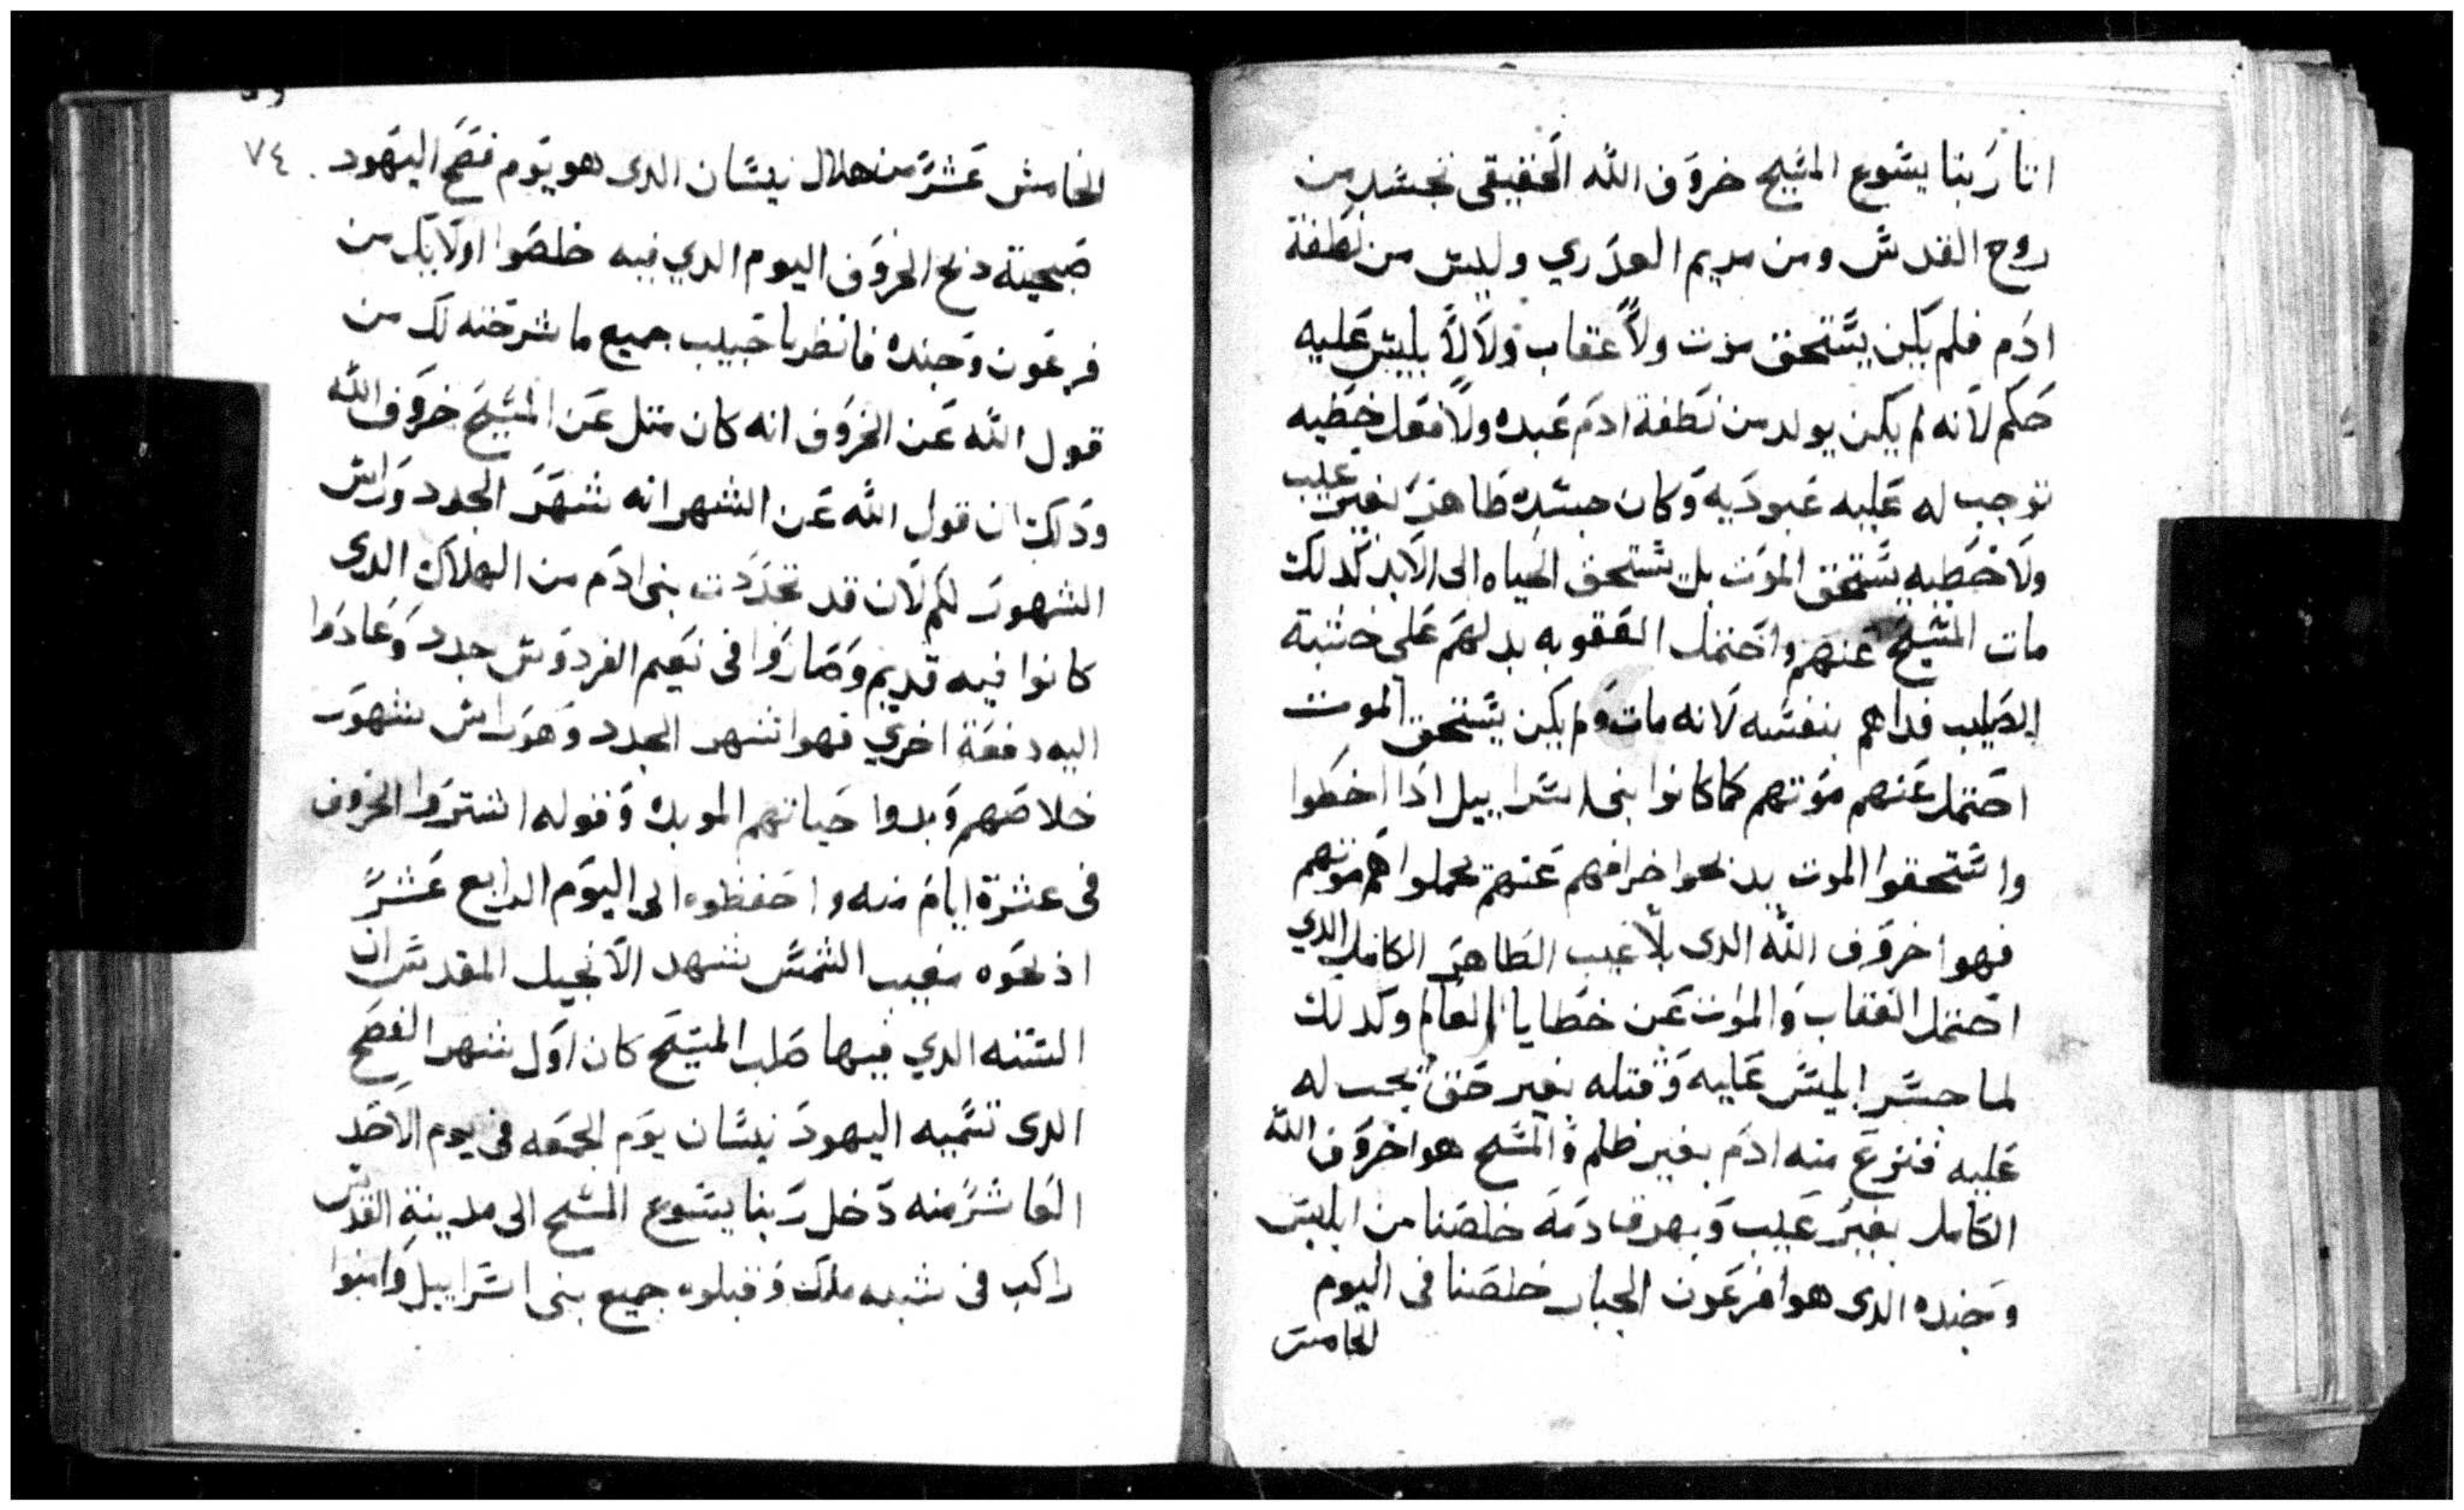 اتا ربنا يسوع المسيح خروف الله الحقيقى تجسد من
روح القدس ومن مريم العدري وليس من نطفة
ادم فلم يكن يستحق موت ولا عقاب ولا لابليس عليه
حكم لانه لم يكن يولد من نطفة ادم عبده ولا فعل خطيه
توجب له عليه عبوديه وكان جسده طاهر بغير عيب
ولا خطيه يستحق الموت بل يستحق الحياه الى الابد كدلك
مات المسيح عنهم واحتمل العقوبه بدلهم على خشبة
الصليب فداهم بنفسه لانه مات ولم يكن يستحق الموت
احتمل عنهم موتهم كما كانوا بنى اسراييل ادا اخطوا
واستحقوا الموت يدبحوا خرافهم عنهم يحملوا هم موتهم
فهوا خروف الله الدى بلا عيب الطاهر الكامل الدي
احتمل العقاب والموت عن خطايا العالم وكدلك
لما جسر ابليس عليه وقتله بغير حق يجب له
عليه فنزع منه ادم بغير ظلم والمسيح هوا خروف الله
الكامل بغير عيب وبهرق دمه خلصنا من ابليس
وجنده الدى هوا فرعون الجبار خلصنا فى اليوم
الخامس
٧٤
الخامس عشر من هلال نيسان الدى هو يوم فصح اليهود
صبحية دبح الخروف اليوم الدي فيه خلصوا اولايك من
فرعون وجنده فانظر يا حبيب جميع ما شرحته لك من
قول الله عن الخروف انه كان متل عن المسيح خروف الله
ودلك ان قول الله عن الشهر انه شهر الجدد وراس
الشهور لكم لان قد تجددت بنى ادم من الهلاك الدى
كانوا فيه قديم وصاروا فى نعيم الفردوس جدد وعادوا
اليه دفعة اخري فهوا شهر الجدد وهو راس شهور
خلاصهم وبدوا حياتهم الموبده وقوله اشتروا الخروف
فى عشرة ايام منه واحفظوه الي اليوم الرابع عشر
ادبحوه مغيب الشمس يشهد الانجيل المقدس ان
السنه الدي فيها صلب المسيح كان اول شهر الفصح
الدى تسميه اليهود نيسان يوم الجمعه فى يوم الاحد
العاشر منه دخل ربنا يسوع المسيح الى مدينة القدس
راكب فى شبه ملك وقبلوه جميع بنى اسراييل وامنوا